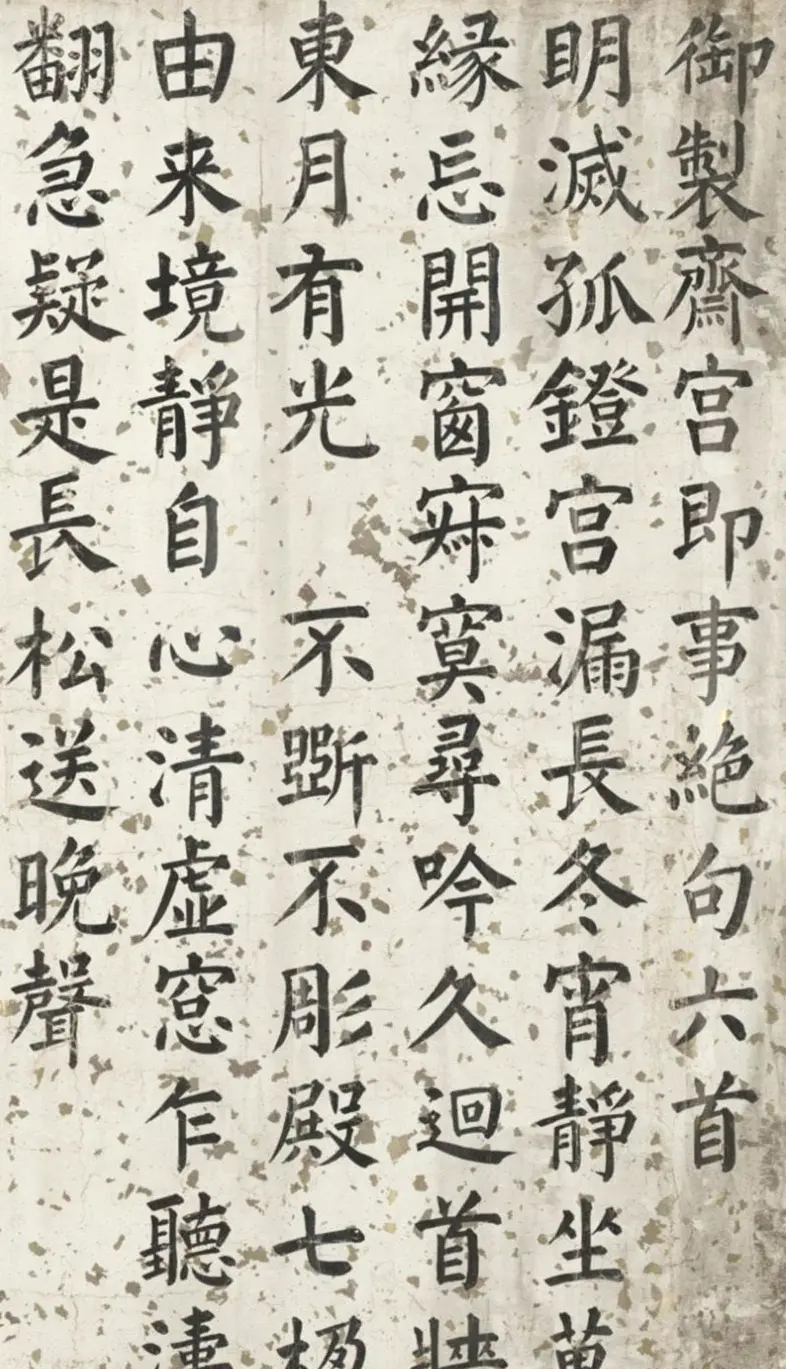 御製齋宮即事絶句六首
明滅孤鐙宮漏長冬宵靜坐萬
緣忘開窗寂寞尋吟久迴首牆
東月有光 不斲不彫殿七楹
由来境靜自心清虛窓乍聽
翻急疑是長松送晚聲